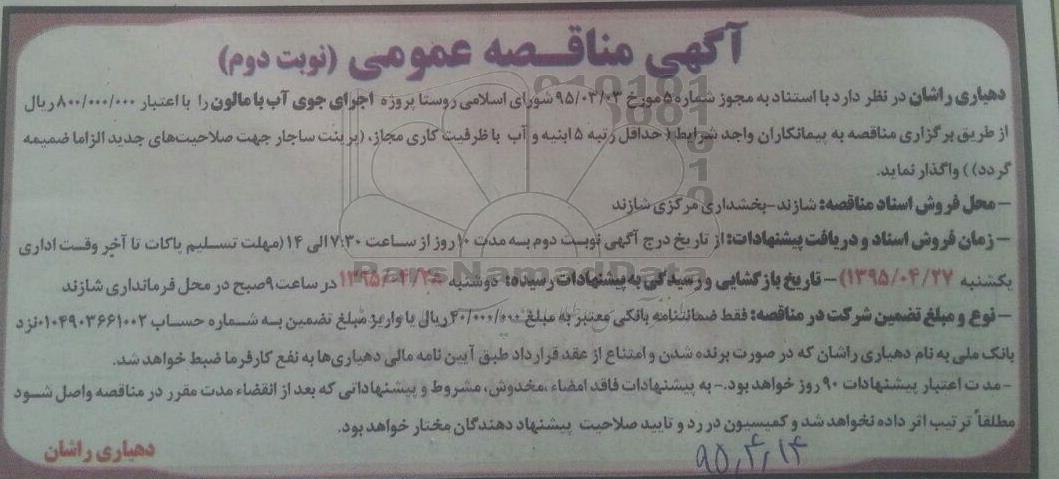 آگهی مناقصه عمومی (نوبت دوم)
دهیاری راشان در نظر دارد با استناد به مجوز شماره ۵ مورخ ۹۵/۰۳/۰۳ شورای اسلامی روستا پروژه اجرای جوی آب بامالون را با اعتبار ۸۰۰/۰۰۰/۰۰۰ ریال
از طریق برگزاری مناقصه به پیمانکاران واجد شرایط (حداقل رتبه ۵ ابنیه و آب با ظرفیت کاری مجاز، (پرینت ساجار جهت صلاحیت‌های جدید الزاما ضمیمه
گردد)) واگذار نماید.
– محل فروش اسناد مناقصه: شازند-بخشداری مرکزی شازند
– زمان فروش اسناد و دریافت پیشنهادات: از تاریخ درج آگهی نوبت دوم به مدت ۱۰ روز از ساعت ۷:۳۰ الی ۱۴ (مهلت تسلیم پاکات تا آخر وقت اداری
یکشنبه ۱۳۹۵/۰۴/۲۷) – تاریخ بازگشایی و رسیدگی به پیشنهادات رسیده: دوشنبه ۱۳۹۵/۰۴/۲۸ در ساعت ۹ صبح در محل فرمانداری شازند
– نوع و مبلغ تضمین شرکت در مناقصه: فقط ضمانتنامه بانکی معتبر به مبلغ ۴۰/۰۰۰/۰۰۰ ریال یا واریز مبلغ تضمین به شماره حساب ۰۱۰۴۹۰۳۶۶۱۰۰۲ نزد
بانک ملی به نام دهیاری راشان که در صورت برنده شدن و امتناع از عقد قرارداد طبق آیین نامه مالی دهیاری‌ها به نفع کارفرما ضبط خواهد شد.
– مدت اعتبار پیشنهادات ۹۰ روز خواهد بود. – به پیشنهادات فاقد امضاء، مخدوش، مشروط و پیشنهاداتی که بعد از انقضاء مدت مقرر در مناقصه واصل شود
مطلقاً ترتیب اثر داده نخواهد شد و کمیسیون در رد و تایید صلاحیت پیشنهاد دهندگان مختار خواهد بود.
دهیاری راشان
۹۵,۴,۱۴
ParsNamadData